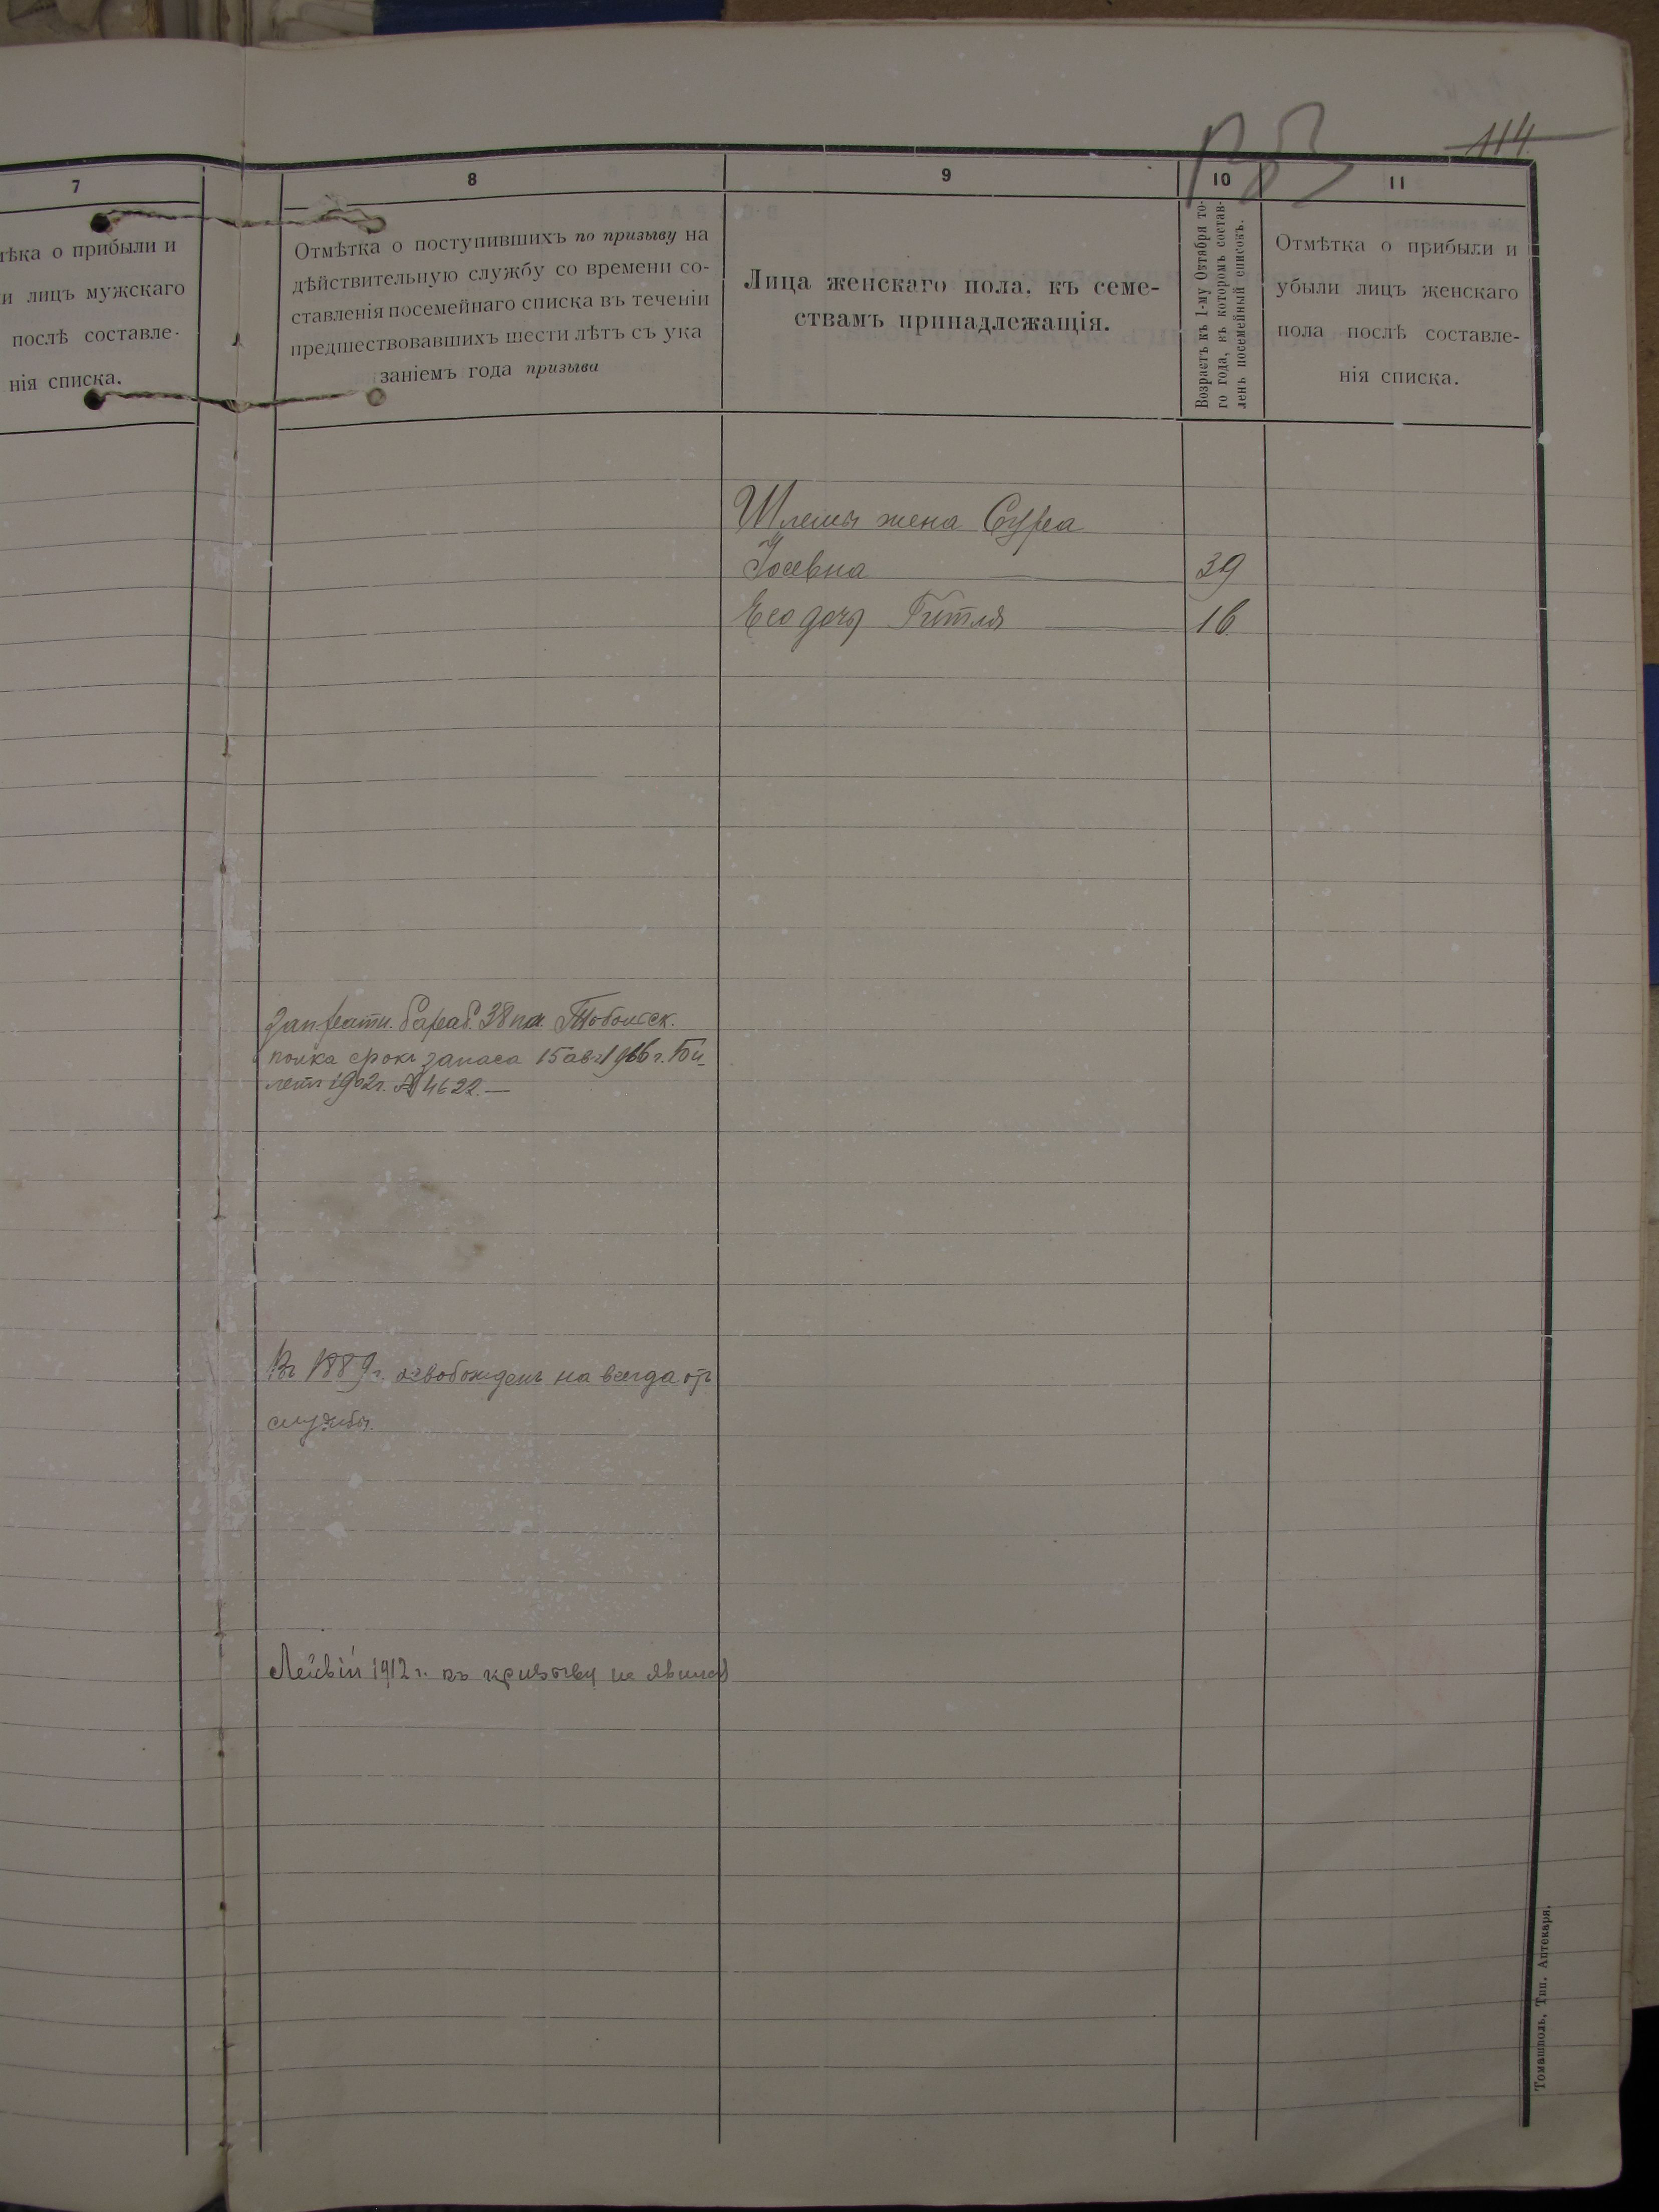 114
7
8
9
10
11
ѣка о прибыли и
и лицъ мужскаго
послѣ составле-
нія списка.
Отмѣтка о поступившихъ по призыву на
дѣйствительную службу со времени со-
ставленія посемейнаго списка въ теченіи
предшествовавшихъ шести лѣтъ съ ука
заніемъ года призыва
Лица женскаго пола, къ семе-
ствамъ принадлежащія.
Возрастъ къ 1-му Октября то-
го года, въ которомъ состав-
ленъ посемейный списокъ.
Отмѣтка о прибыли и
убыли лицъ женскаго
пола послѣ составле-
нія списка.
Шлемы жена Сура
Іосевна 39
Его дочь Гитля 16
Зап. бараб. 38 Тобольск.
полка срокъ запаса 15 авг. 1916 г. Би-
летъ 1902 г. № 4622.—
Въ 1889 г. освобожденъ на всегда отъ
службы.
Лейвій 1912 г. къ призыву не явился
Томашполь, Тип. Аптекаря.